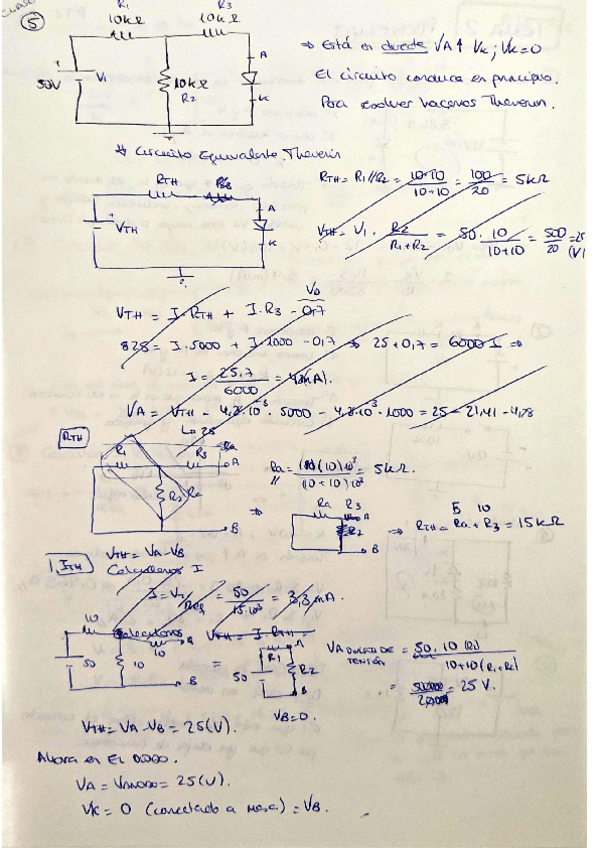 CLASE
5
R1
10kΩ
R3
10kΩ
50V
V1
10kΩ
R2
A
K
⇒ Está en directa VA↑ VK; VK=0
El circuito conduce en principio.
Para resolver hacemos Thevenin.
Circuito Equivalente Thevenin
RTH
R3
A
K
VTH
RTH = R1//R2 = 10·10 / 10+10 = 100 / 20 = 5kΩ
VTH = V1 · R2 / R1+R2 = 50 · 10 / 10+10 = 500 / 20 = 25 (V)
VD
VTH = I·RTH + I·R3 - 0,7
= I·5000 + I·1000 - 0,7 ⇒ 25+0,7 = 6000 I ⇒
I = 25,7 / 6000 = (mA).
VA = VTH - 4,28·10⁻³ · 5000 - 4,28·10⁻³ · 1000 = 25 - 21,41 - 4,28
L = 25
RTH
R1
R3
Ra
A
R2
Ra
B
Ra = (10)(10)10³ / (10+10)10³ = 5kΩ.
⇒
Ra R3
A
R2
B
5 10
⇒ RTH = Ra + R3 = 15kΩ
ITH
VTH = VA - VB
Calculamos I
I = VT / Req = 50 / 15·10³ = 3,3 mA.
Calculamos VTH = I·RTH =
10
50
10
10
A
B
=
50
R1
R2
A
B
VB=0.
VA DIVISOR DE TENSIÓN = 50·10 (R2) / 10+10 (R1+R2)
= = 25 V.
VTH = VA - VB = 25(V).
Ahora en El DIODO.
VA = VANODO = 25(V).
VK = 0 (conectado a masa) = VB.